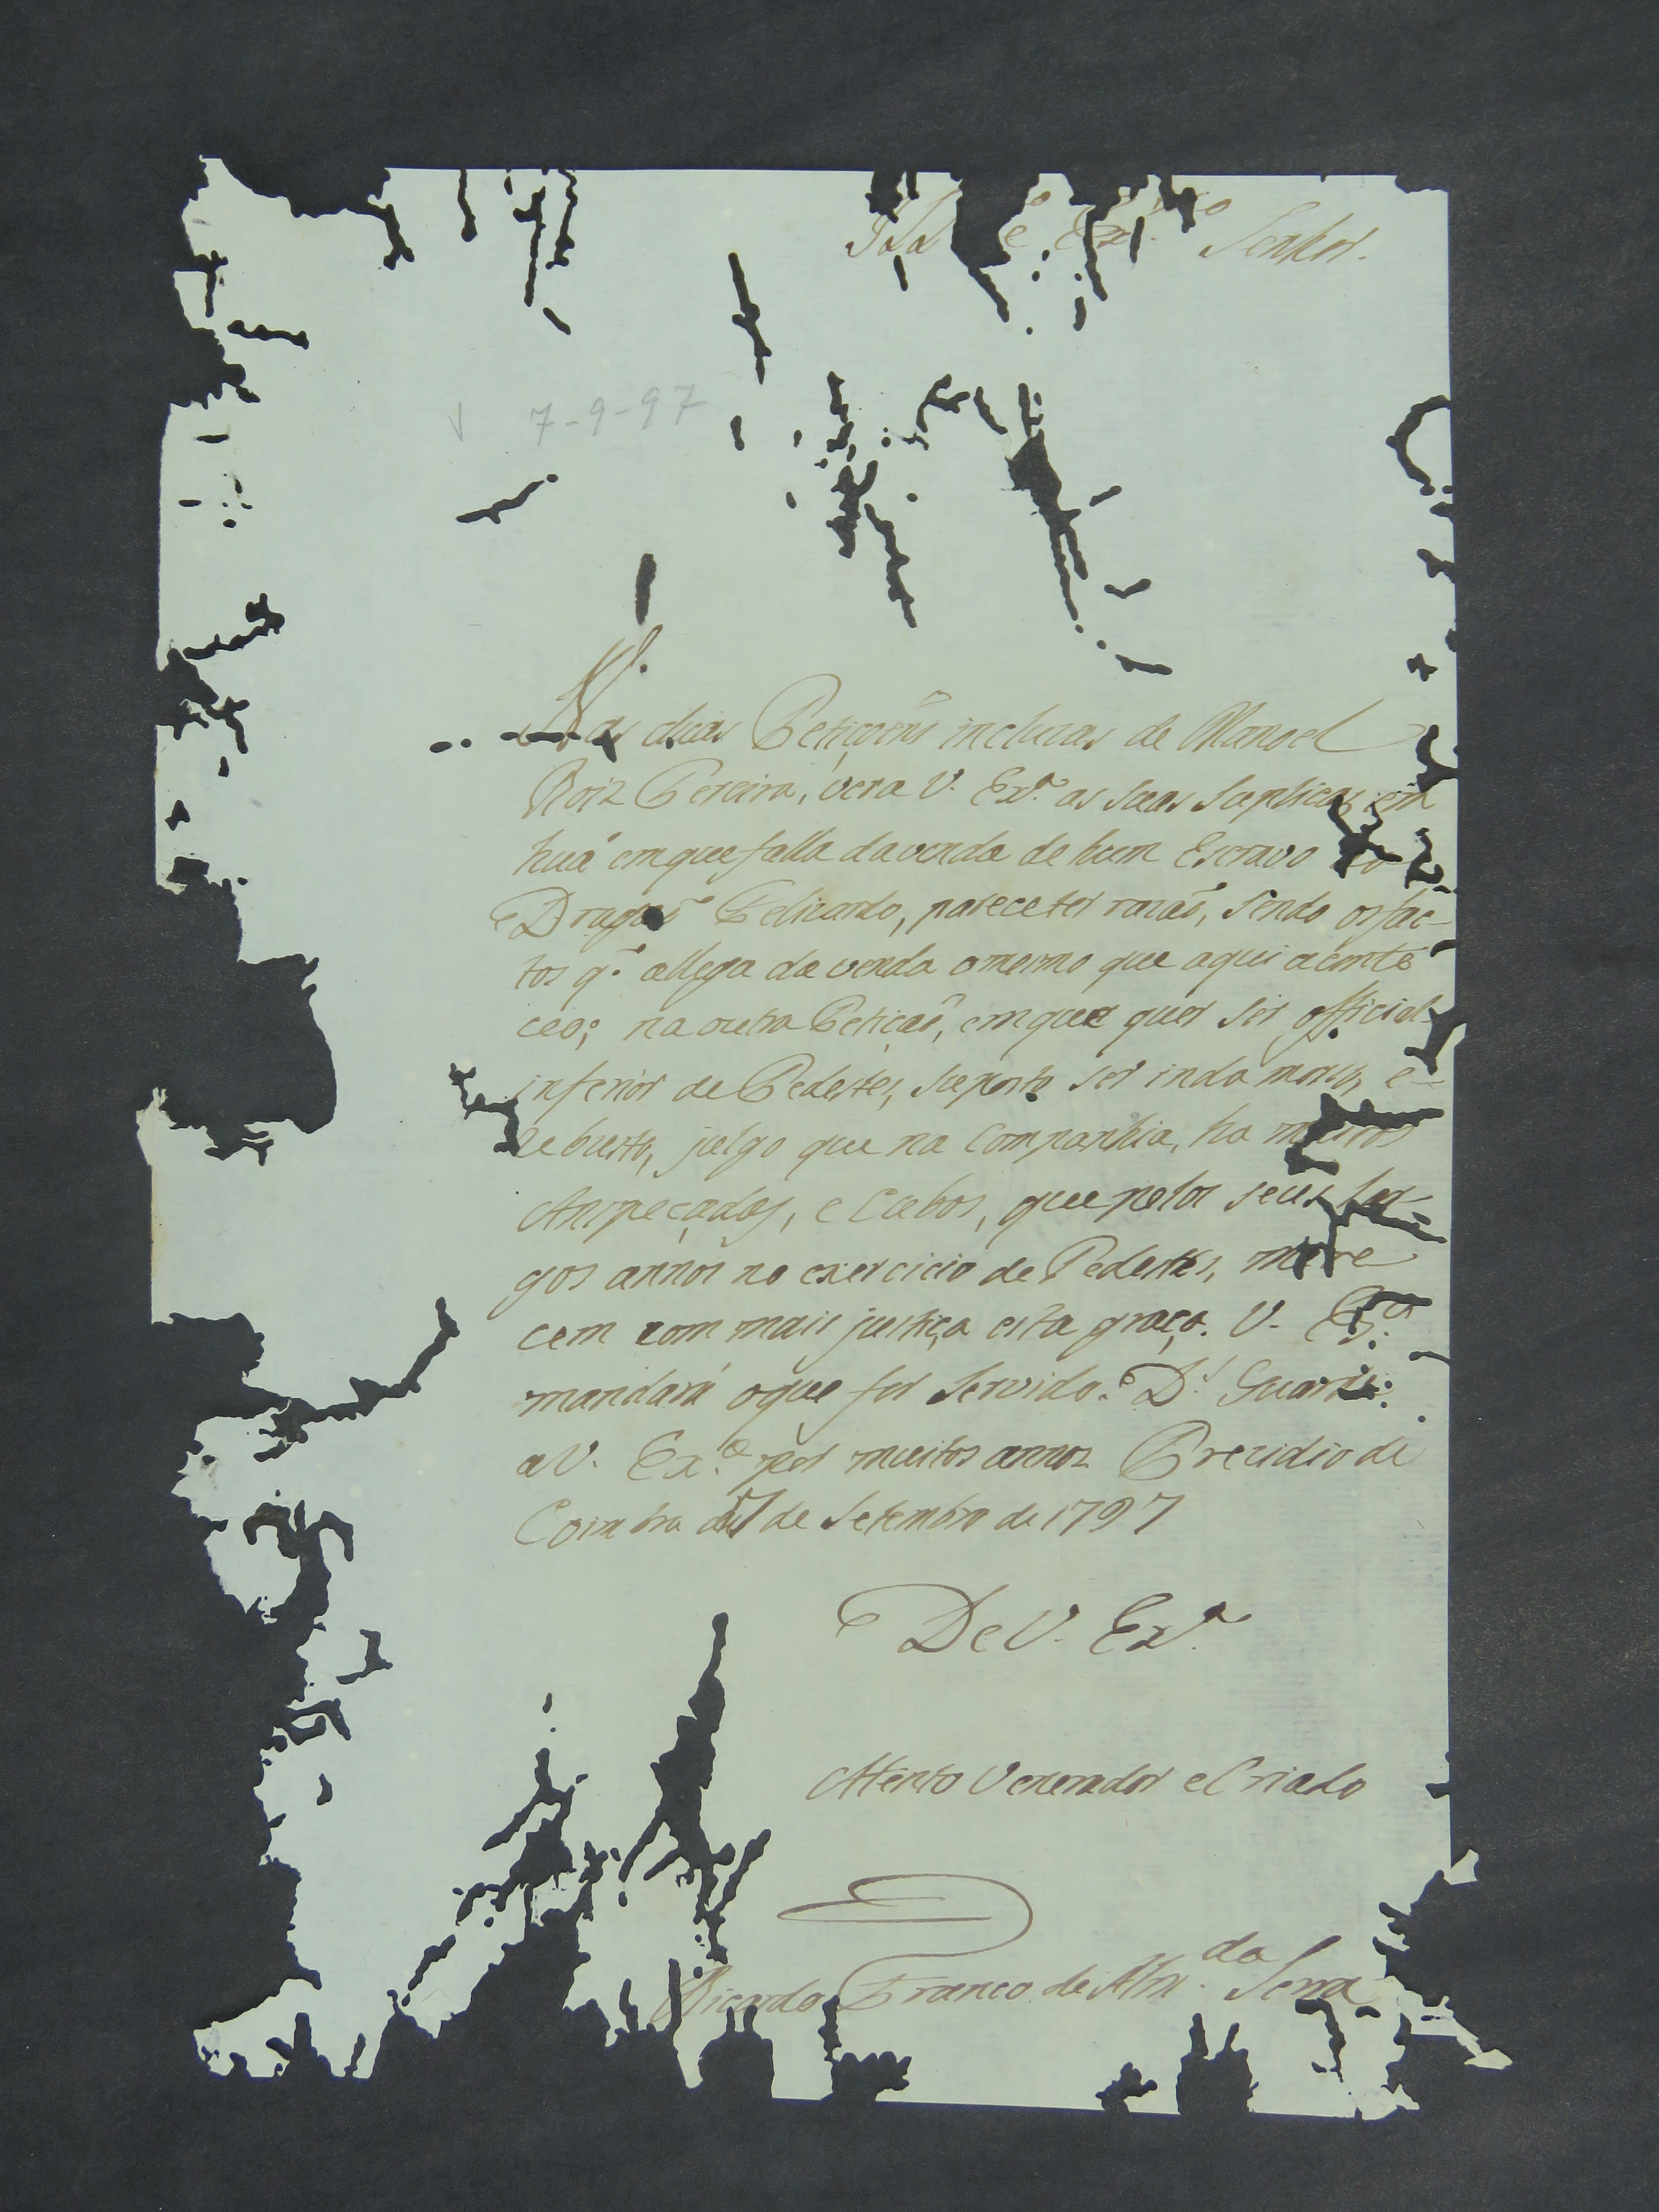 Ill e Ex.mo Senhor.
7-9-97
Nas duas Petiçoens incluzas de Manoel
Roiz Pereira, vera V. Ex.ª as suas suplicas, em
huã em que falla da venda de hum Escravo ao
Dragaõ Belizardo, parece ter razaõ, sendo os fac-
tos q. allega da venda o mesmo que aqui aconte
ceo; na outra Petiçaõ, em que quer ser official
inferior de Pedestes, suposto ser inda moço, e
robusto, julgo que na Companhia, ha muitos
Anspeçadas, e Cabos, que pelos seus lar-
gos annos no exercicio de Pedestes, mere
cem com mais justiça esta graça. V. Ex.ª
mandará o que for servido. D.s Guarde
a V. Ex.ª por muitos annos Prezidio de
Coimbra 7 de Setembro de 1797
De V. Ex.ª
Atento Venerador e Criado
Ricardo Franco de Alm.da Serra